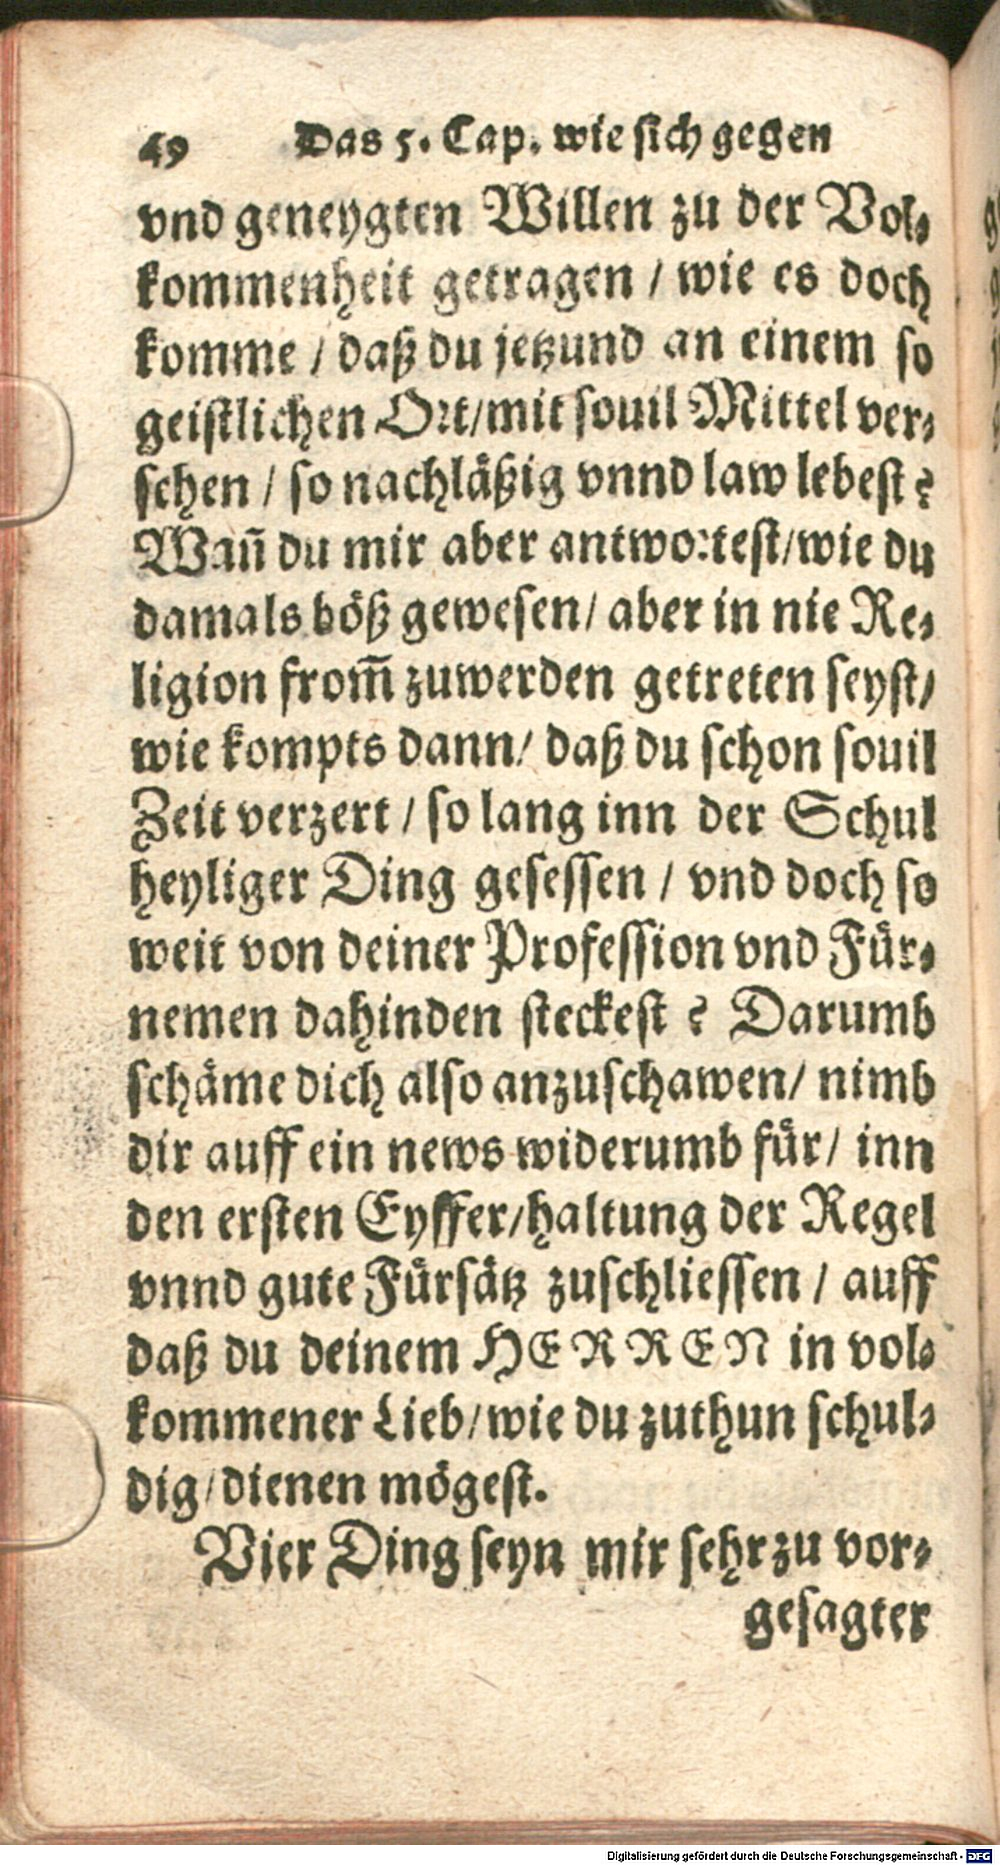 49 Das 5. Cap. wie sich gegen
vnd geneygten Willen zu der Vol-
kommenheit getragen / wie es doch
komme / daß du jetzund an einem so
geistlichen Ort/mit souil Mittel ver-
sehen / so nachläßig vnnd law lebest?
Wañ du mir aber antwortest/wie du
damals böß gewesen/ aber in nie Re-
ligion from̃ zuwerden getreten seyst/
wie kompts dann/ daß du schon souil
Zeit verzert / so lang inn der Schul
heyliger Ding gesessen / vnd doch so
weit von deiner Profession vnd Für-
nemen dahinden steckest? Darumb
schäme dich also anzuschawen/ nimb
dir auff ein news widerumb für/ inn
den ersten Eyffer/haltung der Regel
vnnd gute Fürsätz zuschliessen / auff
daß du deinem HERREN in vol-
kommener Lieb/wie du zuthun schul-
dig/dienen mögest.
Vier Ding seyn mir sehr zu vor-
gesagter
Digitalisierung gefördert durch die Deutsche Forschungsgemeinschaft - DFG